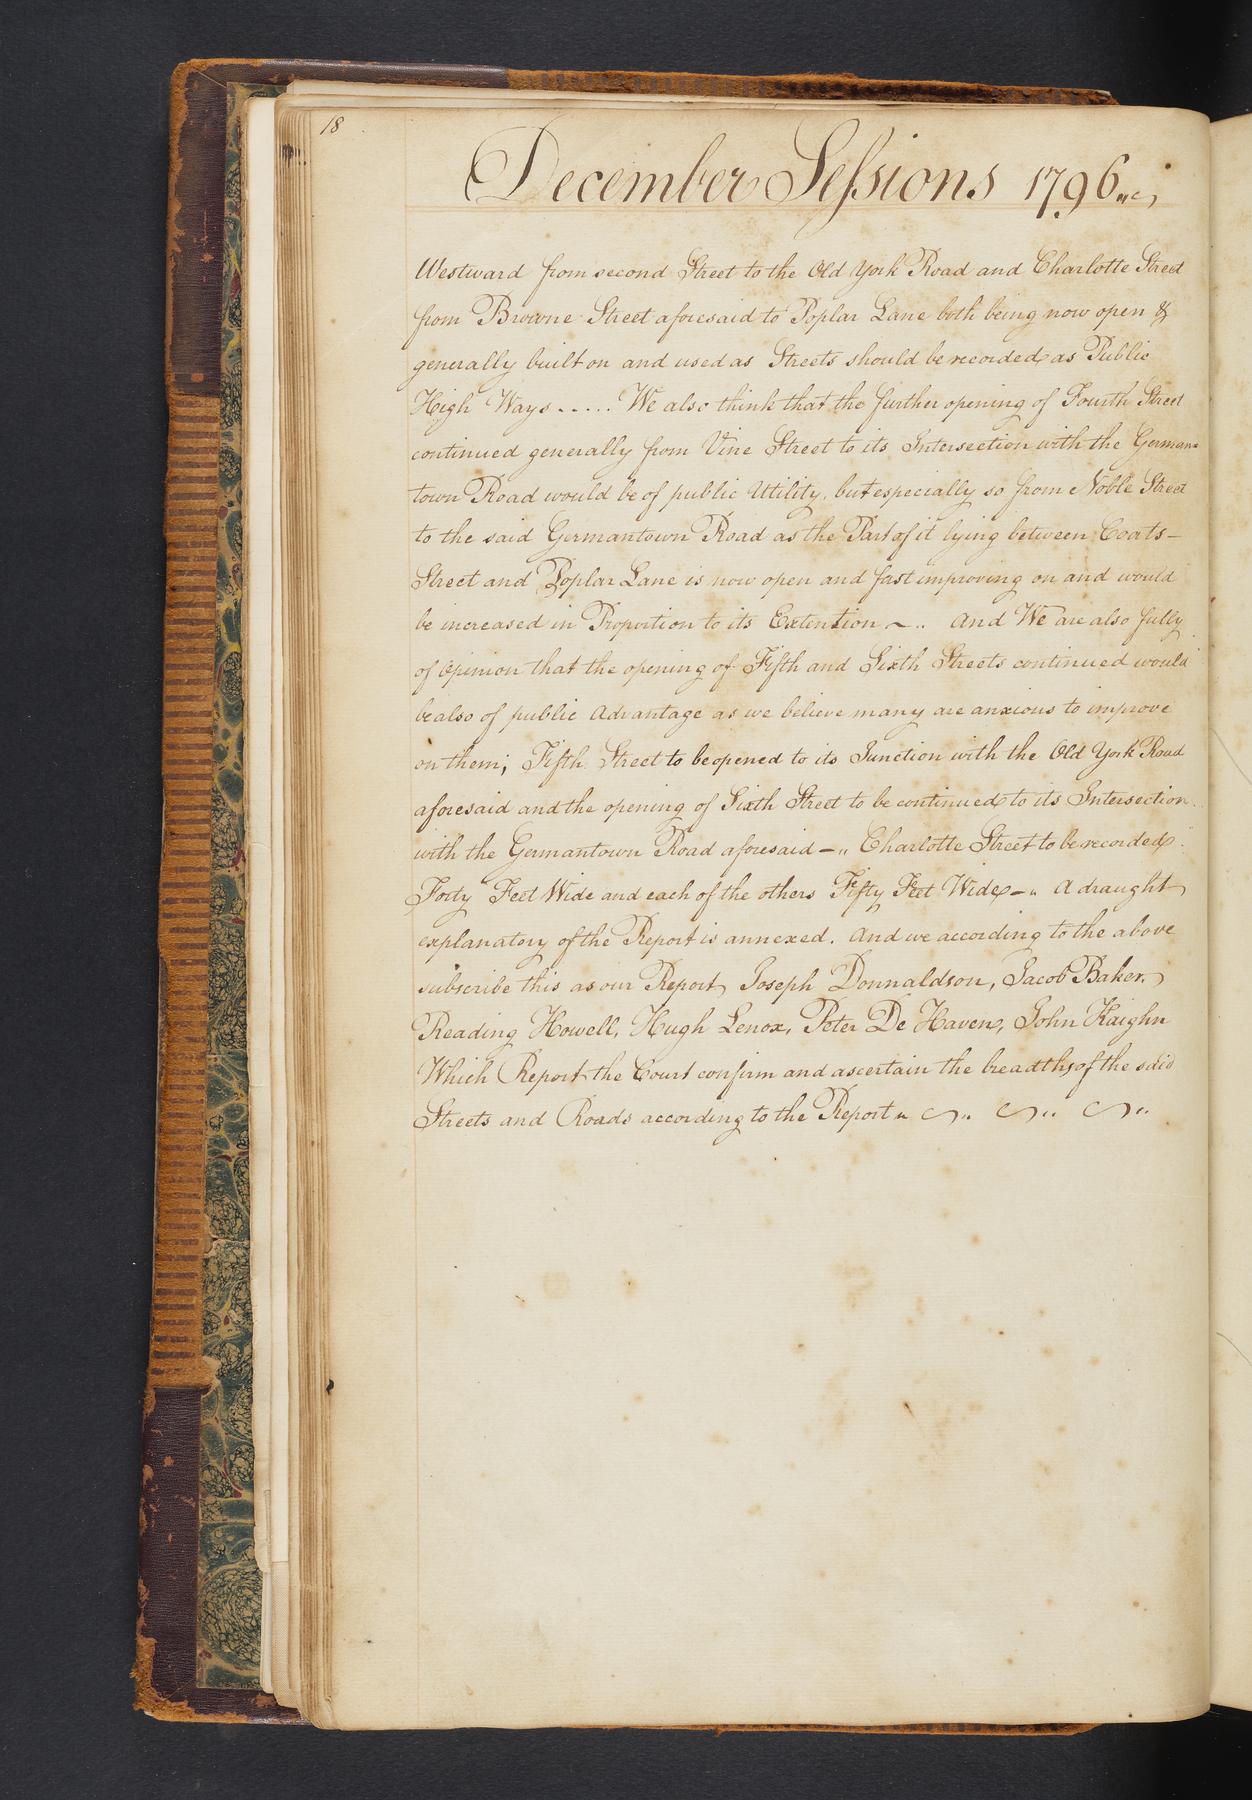 18
December Sessions 1796
Westward from second Street to the Old York Road and Charlotte Street
from Browne Street aforesaid to Poplar Lane both being now open &
generally built on and used as Streets should be recorded as Public
High Ways ..... We also think that the further opening of Fourth Street
continued generally from Vine Street to its Intersection with the German=
town Road would be of public Utility, but especially so from Noble Street
to the said Germantown Road as the Part of it lying between Coats-
Street and Poplar Lane is now open and fast improving on and would
be increased in Proportion to its Extention ~.. And We are also fully
of Opinion that the opening of Fifth and Sixth Streets continued would
be also of public Advantage as we believe many are anxious to improve
on them; Fifth Street to be opened to its Junction with the Old York Road
aforesaid and the opening of Sixth Street to be continued to its Intersection
with the Germantown Road aforesaid -.. Charlotte Street to be recorded
Forty Feet Wide and each of the others Fifty Feet Wide -.. A draught
explanatory of the Report is annexed. And we according to the above
subscribe this as our Report, Joseph Donnaldson, Jacob Baker,
Reading Howell, Hugh Lenox, Peter De Haven, John Kaighn
Which Report the Court confirm and ascertain the breadths of the said
Streets and Roads according to the Report